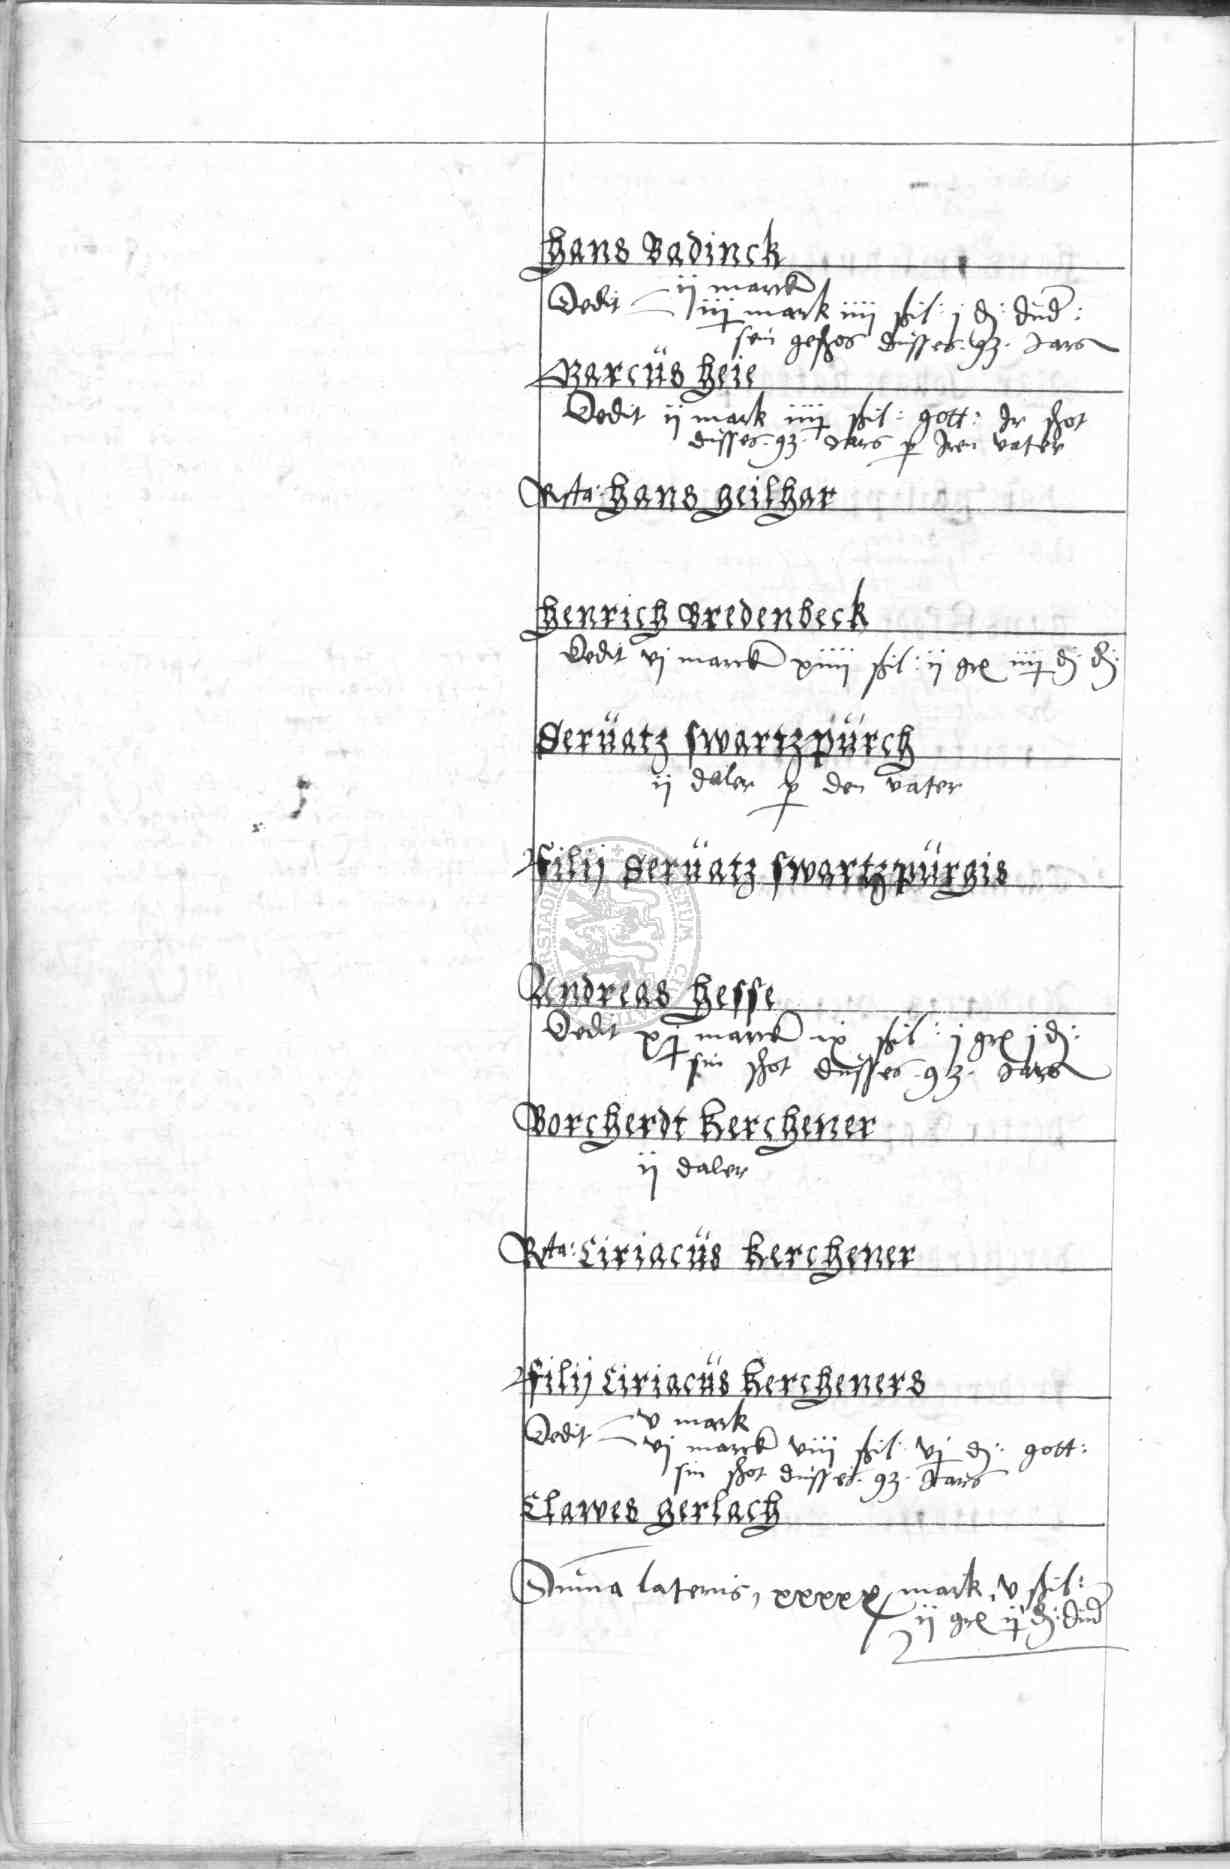 Hans Badinck
ij marck
Dedit iiij mark iiij ßil: j d: dud:
sein geschos dusses .93. Jars
Marcus Heie
Dedit ij mark iiij ßil: gott: Ir shot
dusses .93. Jars p Iren vater
Rta: Hans Geilhar
Henrich Bredenbeck
Dedit vj marck xiiii ßil: ij gr iiij d d:
Seruatz Swartzpurch
ij daler p den vater
Filij Seruatz Swartzpurgis
Andreas Hesse
Dedit xj marck ix ßil: j gr j d:
sin shot dusses .93. Jars
Borcherdt Kerchener
ij daler
Rta: Ciriacus Kerchener
Filij Ciriacus Kercheners
v mark
Dedit vj marck viii ßil: vj d: gott:
sin shot dusses .93. Jars
Clawes Gerlach
Suma lateris, xxxxx mark, v ßil:
ij gr ij d: dud